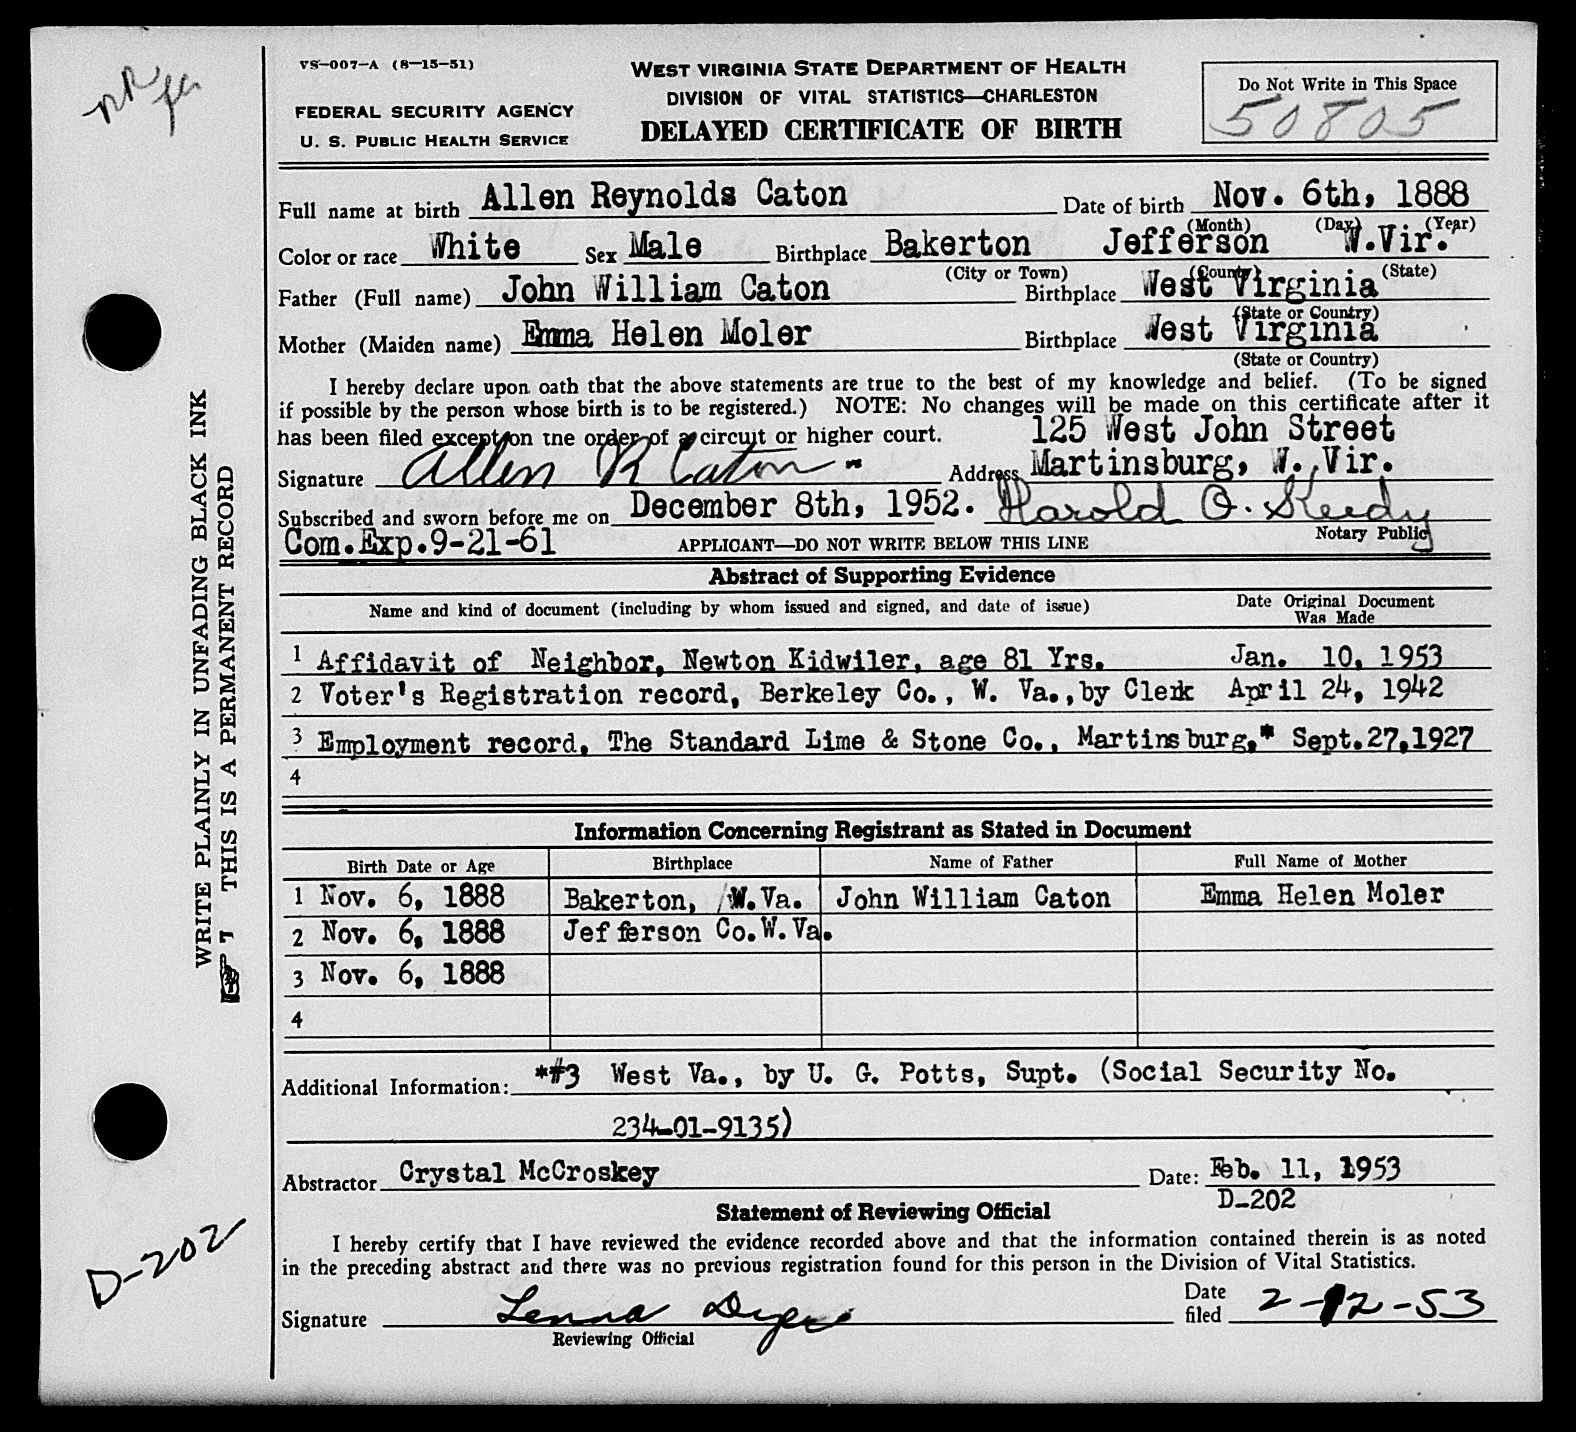 VS-007-A (8-15-51)
FEDERAL SECURITY AGENCY
U. S. PUBLIC HEALTH SERVICE
WEST VIRGINIA STATE DEPARTMENT OF HEALTH
DIVISION OF VITAL STATISTICS—CHARLESTON
DELAYED CERTIFICATE OF BIRTH
Do Not Write in This Space
50805
Full name at birth Allen Reynolds Caton Date of birth Nov. 6th, 1888
(Month) (Day) (Year)
Color or race White Sex Male Birthplace Bakerton Jefferson W.Vir.
(City or Town) (County) (State)
Father (Full name) John William Caton Birthplace West Virginia
(State or Country)
Mother (Maiden name) Emma Helen Moler Birthplace West Virginia
(State or Country)
I hereby declare upon oath that the above statements are true to the best of my knowledge and belief. (To be signed
if possible by the person whose birth is to be registered.) NOTE: No changes will be made on this certificate after it
has been filed except on the order of a circuit or higher court. 125 West John Street
Signature Allen R Caton Address Martinsburg, W. Vir.
Subscribed and sworn before me on December 8th, 1952. Harold O. Keedy
Com.Exp.9-21-61 APPLICANT—DO NOT WRITE BELOW THIS LINE Notary Public
Abstract of Supporting Evidence
Name and kind of document (including by whom issued and signed, and date of issue) Date Original Document Was Made
1 Affidavit of Neighbor, Newton Kidwiler, age 81 Yrs. Jan. 10, 1953
2 Voter's Registration record, Berkeley Co., W. Va.,by Clerk April 24, 1942
3 Employment record, The Standard Lime & Stone Co., Martinsburg,* Sept.27,1927
4
Information Concerning Registrant as Stated in Document
Birth Date or Age Birthplace Name of Father Full Name of Mother
1 Nov. 6, 1888 Bakerton, W.Va. John William Caton Emma Helen Moler
2 Nov. 6, 1888 Jefferson Co.W.Va.
3 Nov. 6, 1888
4
Additional Information: *#3 West Va., by U. G. Potts, Supt. (Social Security No.
234-01-9135)
Abstractor Crystal McCroskey Date: Feb. 11, 1953
D-202
Statement of Reviewing Official
I hereby certify that I have reviewed the evidence recorded above and that the information contained therein is as noted
in the preceding abstract and there was no previous registration found for this person in the Division of Vital Statistics.
Signature Lenna Dyer Date filed 2-12-53
Reviewing Official
WRITE PLAINLY IN UNFADING BLACK INK
THIS IS A PERMANENT RECORD
D-202